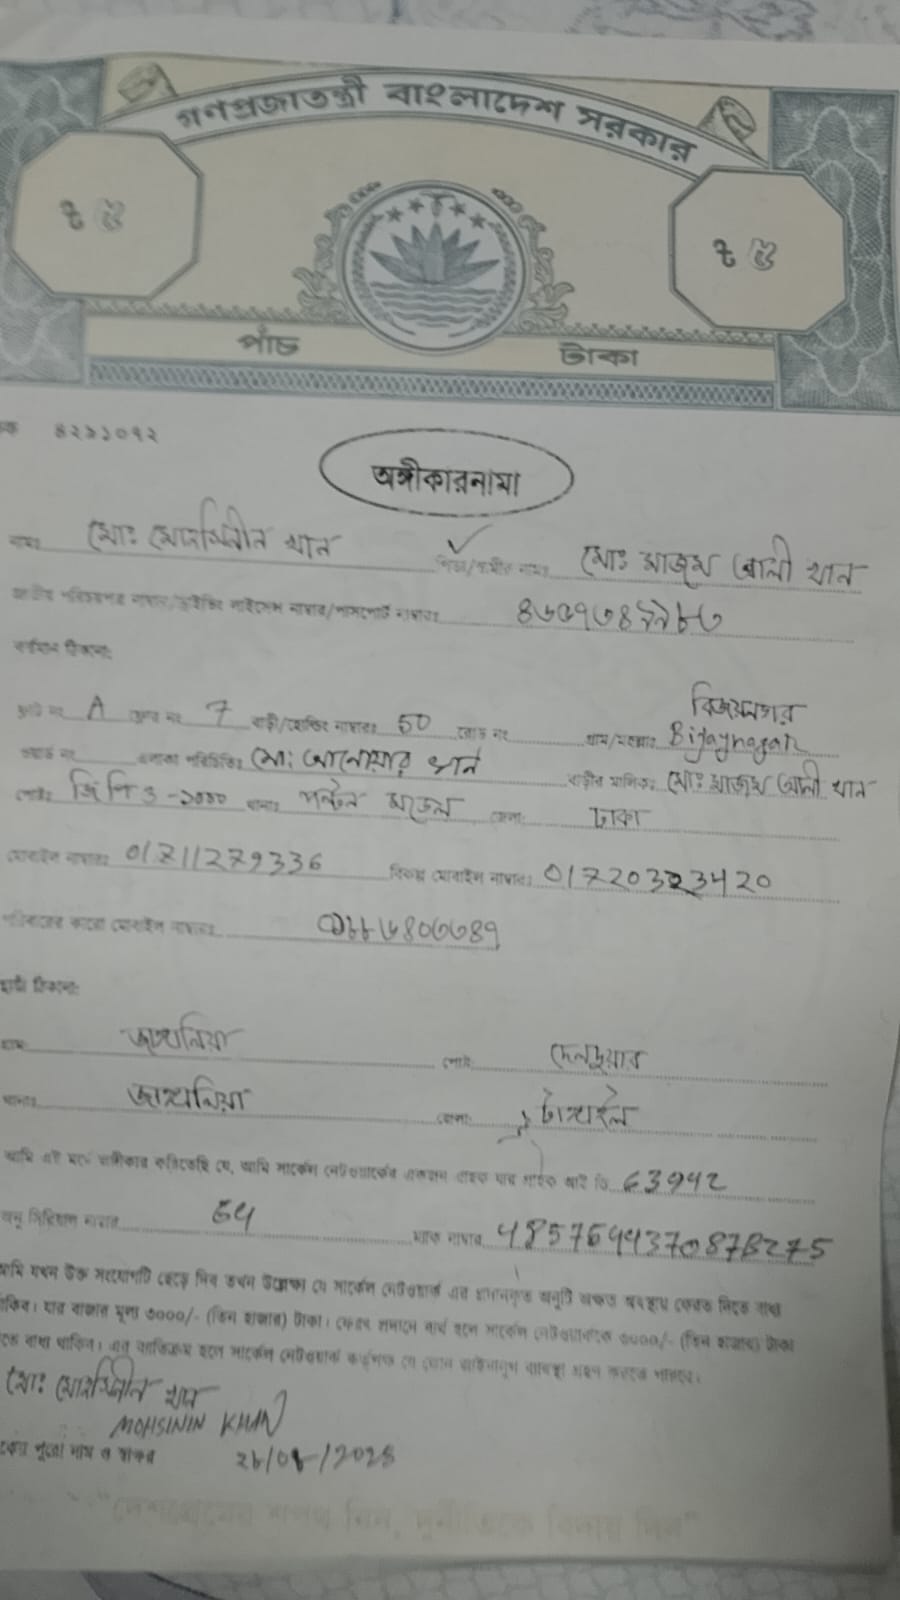 গণপ্রজাতন্ত্রী বাংলাদেশ সরকার
৳ ৫ ৳ ৫
পাঁচ টাকা
৪২৯১০৭২
অঙ্গীকারনামা
নামঃ মোঃ মোহসিনীন খান পিতা/স্বামীর নামঃ মোঃ মাজম আলী খান
জাতীয় পরিচয়পত্র নাম্বার/ড্রাইভিং লাইসেন্স নাম্বার/পাসপোর্ট নাম্বারঃ
বর্তমান ঠিকানা:
ফ্লাট নং A ফ্লোর নং 7 বাড়ী/হোল্ডিং নাম্বারঃ 50 রোড নং গ্রাম/মহল্লাঃ বিজয়নগর Bijaynagar
ওয়ার্ড নং এলাকা পরিচিতিঃ মো: আনোয়ার খান বাড়ীর মালিকঃ মোঃ মাজম আলী খান
পোষ্টঃ জিপিও -১০০০ থানাঃ পল্টন মডেল জেলা: ঢাকা
মোবাইল নাম্বারঃ 01711279336 বিকল্প মোবাইল নাম্বারঃ 01720323420
পরিবারের কারো মোবাইল নাম্বারঃ
স্থায়ী ঠিকানা:
গ্রাম: জাঙ্গালিয়া পোষ্ট: দেলদুয়ার
থানাঃ জাঙ্গালিয়া জেলা: টাঙ্গাইল
আমি এই মর্মে অঙ্গীকার করিতেছি যে, আমি সার্কেল নেটওয়ার্কের একজন গ্রাহক যার গ্রাহক আই ডি 63942
অনু সিরিয়াল নাম্বার 64 ম্যাক নাম্বার 4857544370878275
আমি যখন উক্ত সংযোগটি ছেড়ে দিব তখন উল্লেখ্য যে সার্কেল নেটওয়ার্ক এর প্রদানকৃত অনুটি অক্ষত অবস্থায় ফেরত দিতে বাধ্য
থাকিব। যার বাজার মূল্য ৩০০০/- (তিন হাজার) টাকা। ফেরৎ প্রদানে ব্যর্থ হলে সার্কেল নেটওয়ার্ককে ৩০০০/- (তিন হাজার) টাকা
দিতে বাধ্য থাকিব। এর ব্যতিক্রম হলে সার্কেল নেটওয়ার্ক কর্তৃপক্ষ যে কোন আইনানুগ ব্যবস্থা গ্রহন করতে পারবে।
মোঃ মোহসিনীন খান
MOHSININ KHAN
পুরো নাম ও স্বাক্ষর
"দেশপ্রেমের শপথ নিন, দুর্নীতিকে বিদায় দিন"